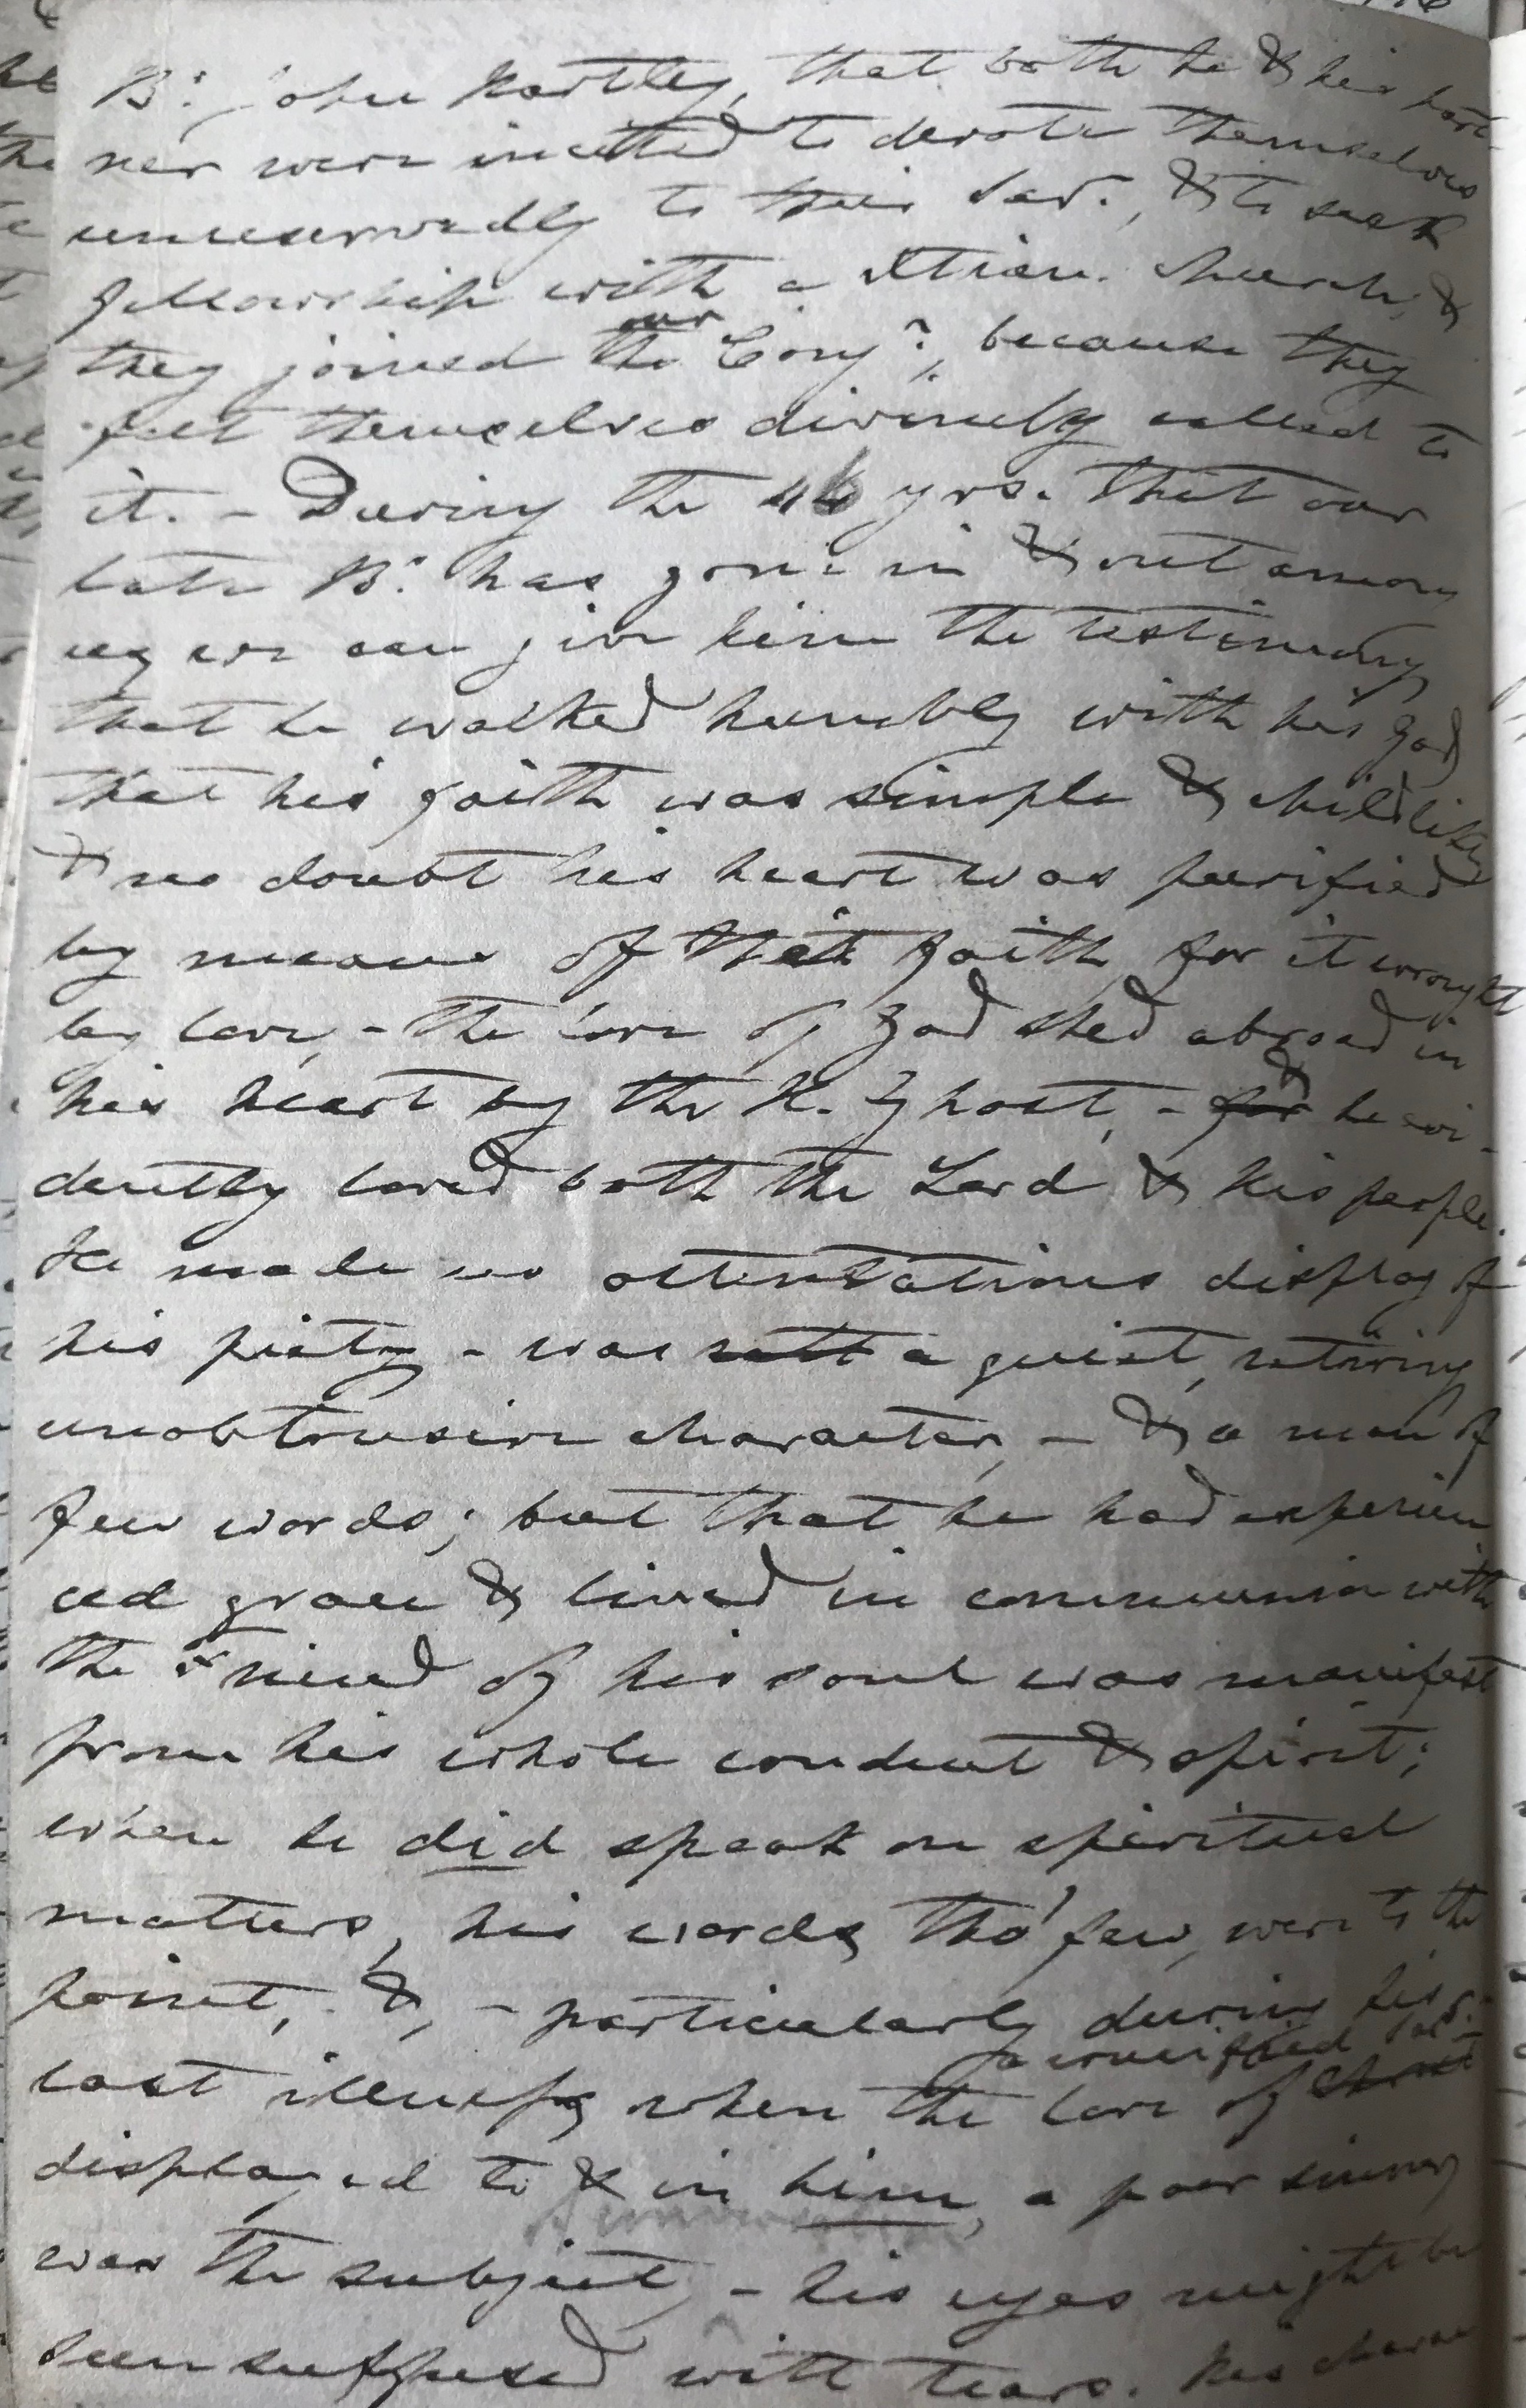 Br. John Hartley, that both he & his part-
ner were incited to devote themselves
unreservedly to their Savr., & to seek
fellowship with a Xtian. Church, &
they joined the our Congn., because they
felt themselves divinely called to
it. – During the 46 yrs. that our
late Br. has gone in & out among
us we can give him the testimony
that he walked humbly with his God
that his faith was simple & childlike,
& no doubt his heart was purified
by means of that faith, for it wrought
by love, – the love of God shed abroad in
his heart by the H. Ghost, – for & he evi-
dently loved both the Lord & His people.
He made no ostentatious display of
his piety – was a quiet, retiring
unobtrusive character, – & a man of
few words; but that he had experien
ced grace & lived in communion with
the Friend of his soul was manifest
from his whole conduct & spirit;
when he did speak on spiritual
matters, his words, tho' few, were to the
point, &, – particularly during his
a crucified Savr.
last illness, when the love of Christ
displayed to & in him, a poor sinner,
was the subject, – his eyes might be
seen suffused with tears. His charac